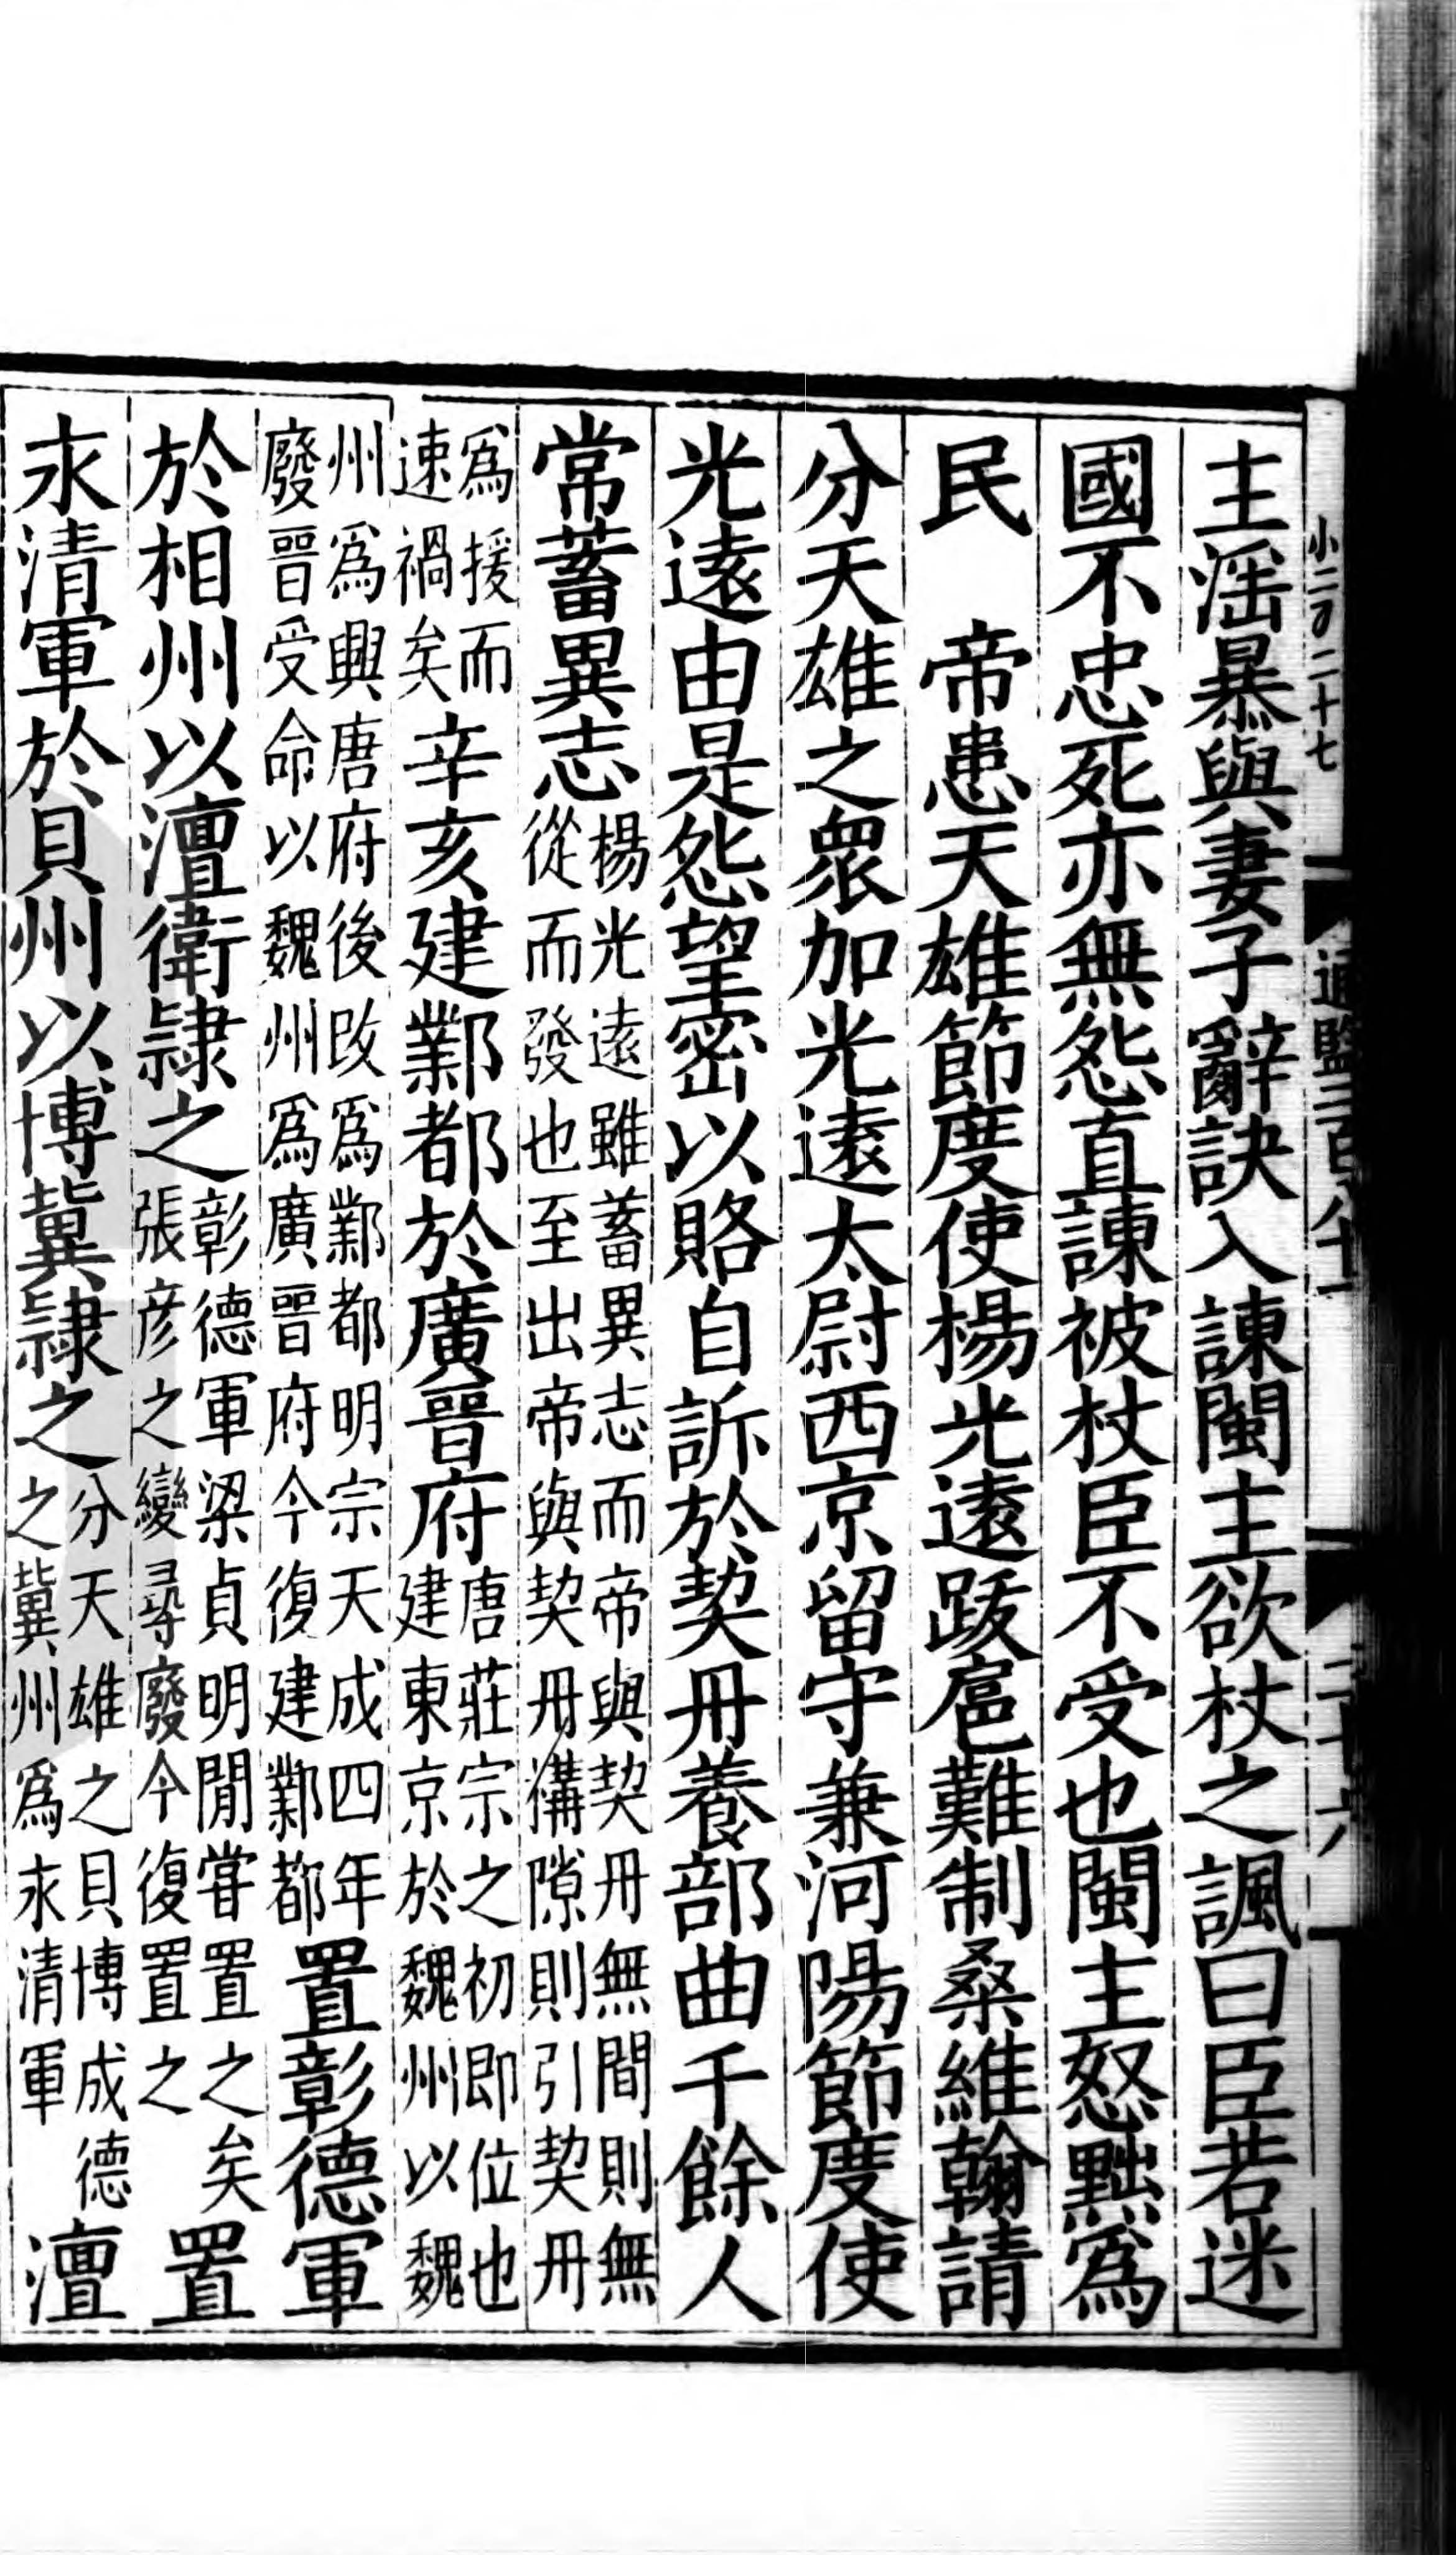 小二百二十七
通鑑二百八十一
二十六
主滛暴與妻子辭訣入諫閩主欲杖之諷曰臣若迷
國不忠死亦無怨直諫被杖臣不受也閩主怒黜爲
民　帝患天雄節度使楊光遠跋扈難制桑維翰請
分天雄之衆加光遠太尉西京留守兼河陽節度使
光遠由是怨望密以賂自訴於契丹養部曲千餘人
常蓄異志楊光遠雖蓄異志而帝與契丹無間則無從而發也至出帝與契丹構隙則引契丹
爲援而速禍矣辛亥建鄴都於廣晉府唐莊宗之初即位也建東京於魏州以魏
州爲興唐府後改爲鄴都明宗天成四年廢晉受命以魏州爲廣晉府今復建鄴都置彰德軍
於相州以澶衛隷之彰德軍梁貞明閒嘗置之矣張彦之變尋廢今復置之置
永清軍於貝州以博冀隷之分天雄之貝博成德之冀州爲永清軍澶